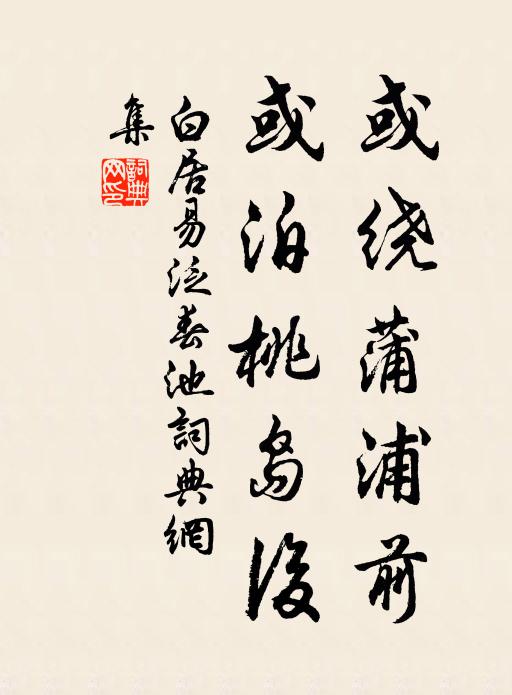 或绕蒲浦前
或泊桃岛後
白居易泛春池詞典網
集
詞典网印